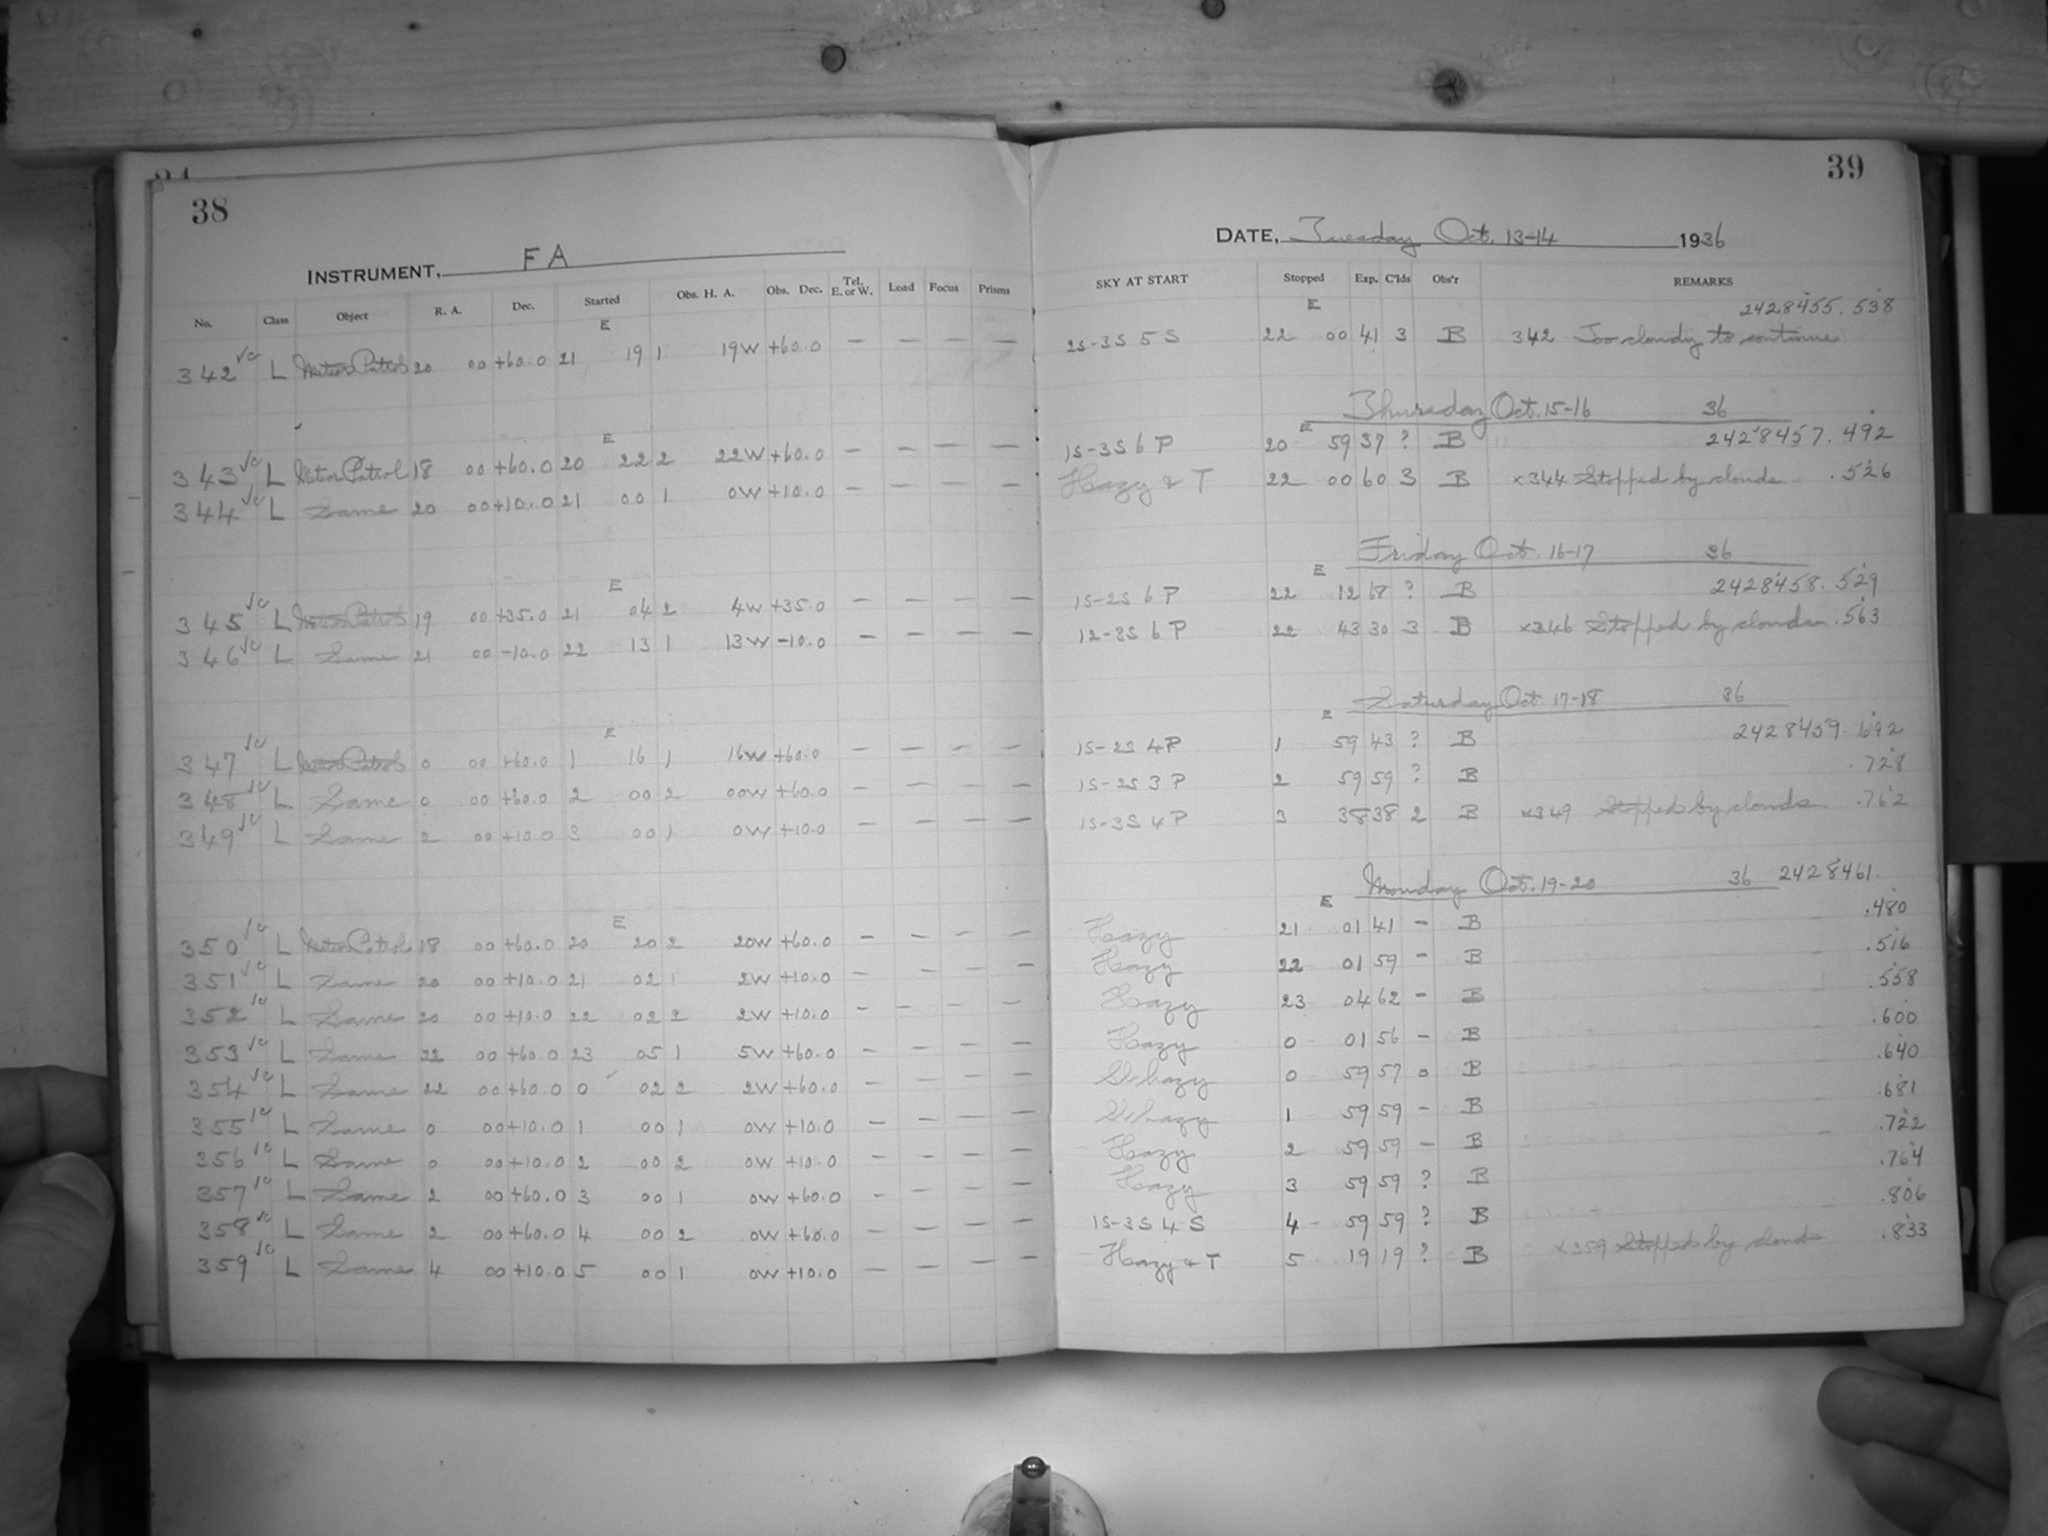 38
INSTRUMENT, FA
No. Class Object R. A. Dec. Started Obs. H. A. Obs. Dec. Tel. E. or W. Load Focus Prisms
E
342 √c L Meteor Patrol 20 00 +60.0 21 19 1 19W +60.0 — — — —
E
343 √c L Meteor Patrol 18 00 +60.0 20 22 2 22W +60.0 — — — —
344 √c L Same 20 00 +10.0 21 00 1 0W +10.0 — — — —
E
345 √c L Meteor Patrol 19 00 +35.0 21 04 2 4W +35.0 — — — —
346 √c L Same 21 00 -10.0 22 13 1 13W -10.0 — — — —
E
347 √c L Meteor Patrol 0 00 +60.0 1 16 1 16W +60.0 — — — —
348 √c L Same 0 00 +60.0 2 00 2 00W +60.0 — — — —
349 √c L Same 2 00 +10.0 3 00 1 0W +10.0 — — — —
E
350 √c L Meteor Patrol 18 00 +60.0 20 20 2 20W +60.0 — — — —
351 √c L Same 20 00 +10.0 21 02 1 2W +10.0 — — — —
352 √c L Same 20 00 +10.0 22 02 2 2W +10.0 — — — —
353 √c L Same 22 00 +60.0 23 05 1 5W +60.0 — — — —
354 √c L Same 22 00 +60.0 0 02 2 2W +60.0 — — — —
355 √c L Same 0 00 +10.0 1 00 1 0W +10.0 — — — —
356 √c L Same 0 00 +10.0 2 00 2 0W +10.0 — — — —
357 √c L Same 2 00 +60.0 3 00 1 0W +60.0 — — — —
358 √c L Same 2 00 +60.0 4 00 2 0W +60.0 — — — —
359 √c L Same 4 00 +10.0 5 00 1 0W +10.0 — — — —
39
DATE, Tuesday Oct. 13-14 1936
SKY AT START Stopped Exp. C'lds Obs'r REMARKS
E 2428455.538
2S-3S 5 S 22 00 41 3 B 342 Too cloudy to continue
Thursday Oct. 15-16 36
E
1S-3S 6 P 20 59 37 ? B 2428457.492
Hazy & T 22 00 60 3 B x344 Stopped by clouds .526
Friday Oct. 16-17 36
E
1S-2S 6 P 22 12 68 ? B 2428458.529
12-3S 6 P 22 43 30 3 B x346 Stopped by clouds .563
Saturday Oct. 17-18 36
E
1S-2S 4P 1 59 43 ? B 2428459.692
1S-2S 3 P 2 59 59 ? B .728
1S-3S 4 P 3 38 38 2 B x349 Stopped by clouds .762
Monday Oct. 19-20 36 2428461.
E
Hazy 21 01 41 - B .480
Hazy 22 01 59 - B .516
Hazy 23 04 62 - B .558
Hazy 0 01 56 - B .600
Sl hazy 0 59 57 0 B .640
Sl hazy 1 59 59 - B .681
Hazy 2 59 59 - B .722
Hazy 3 59 59 ? B .764
1S-3S 4 S 4 59 59 ? B .806
Hazy & T 5 19 19 ? B x359 Stopped by clouds .833